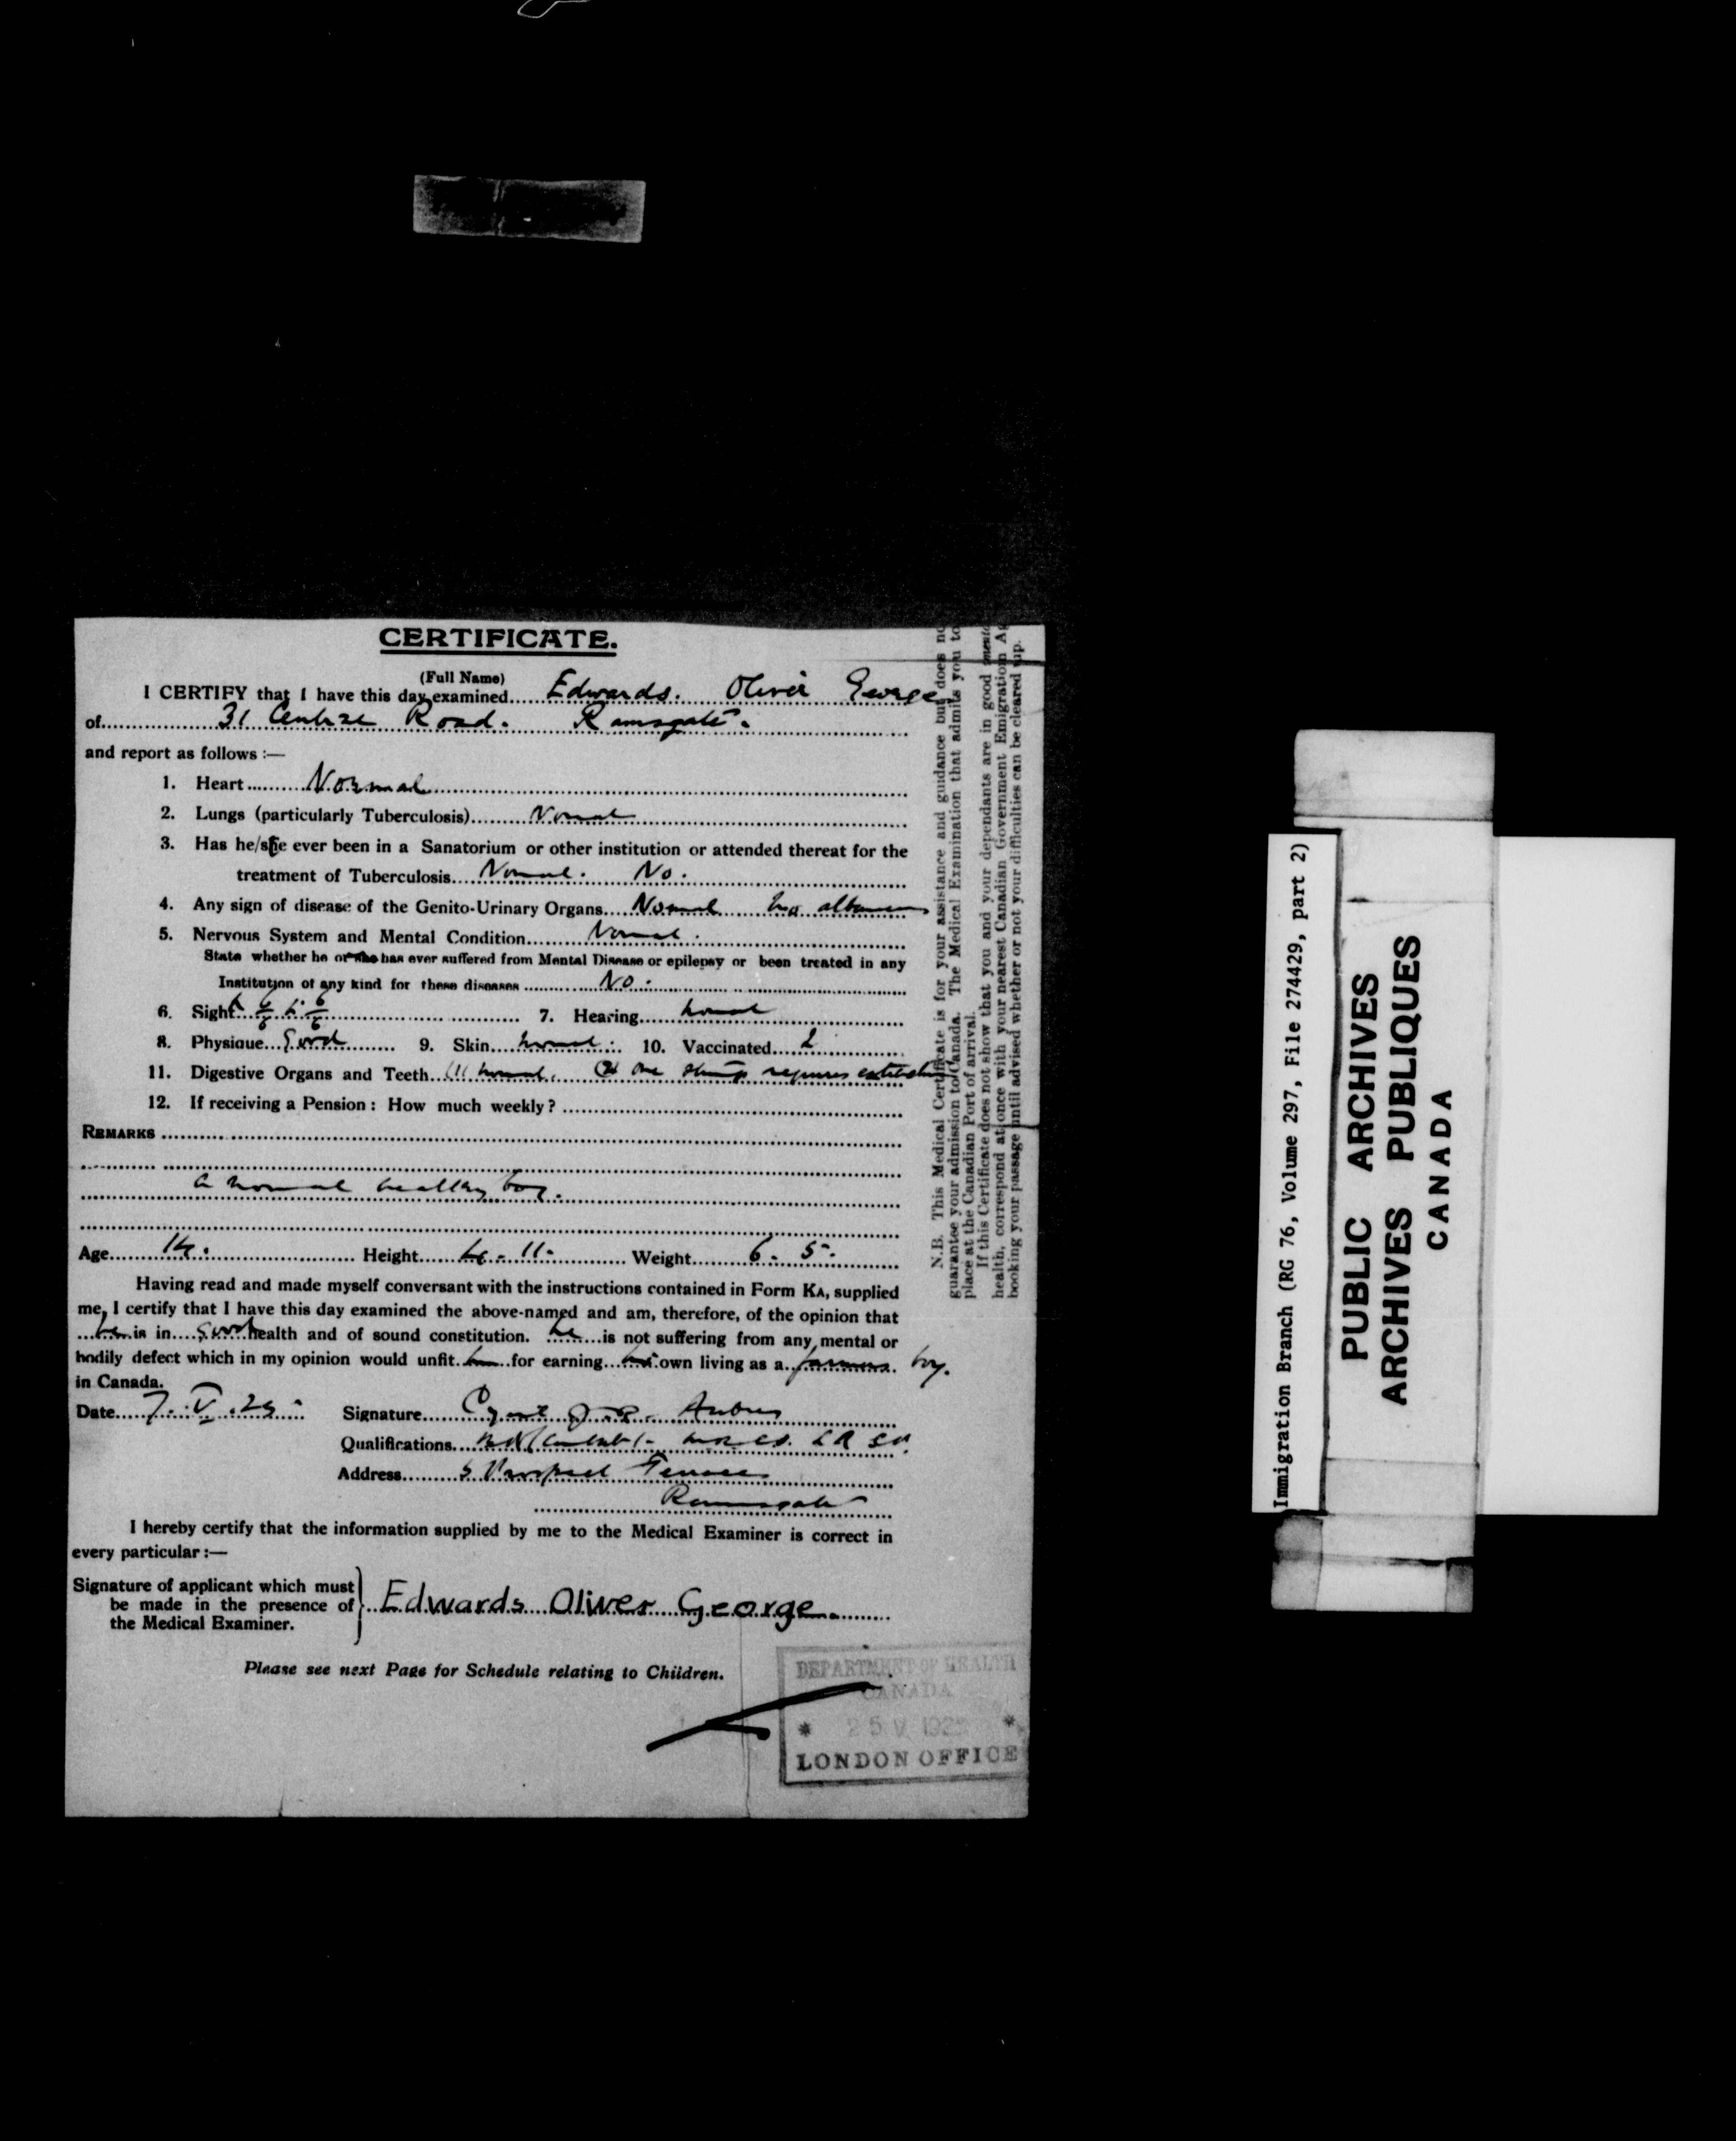 CERTIFICATE.
(Full Name)
I CERTIFY that I have this day examined Edwards. Oliver George
of 31 Road. Ramsgate.
and report as follows :—
1. Heart Normal
2. Lungs (particularly Tuberculosis) Normal
3. Has he/she ever been in a Sanatorium or other institution or attended thereat for the
treatment of Tuberculosis Normal. No.
4. Any sign of disease of the Genito-Urinary Organs Normal no albumen
5. Nervous System and Mental Condition Normal.
State whether he or she has ever suffered from Mental Disease or epilepsy or been treated in any
Institution of any kind for these diseases No.
6. Sight R 6/6 L. 6/6 7. Hearing normal
8. Physique Good 9. Skin normal. 10. Vaccinated 2
11. Digestive Organs and Teeth (1) normal. (2) one stump requires extraction
12. If receiving a Pension : How much weekly ?
REMARKS
a normal healthy boy.
Age 14. Height 4-11- Weight 6. 5.
Having read and made myself conversant with the instructions contained in Form KA, supplied
me, I certify that I have this day examined the above-named and am, therefore, of the opinion that
he is in good health and of sound constitution. he is not suffering from any mental or
bodily defect which in my opinion would unfit him for earning his own living as a farmers boy.
in Canada.
Date 7. V. 25 Signature
Qualifications
Address 5 Prospect Terrace
Ramsgate
I hereby certify that the information supplied by me to the Medical Examiner is correct in
every particular :—
Signature of applicant which must
be made in the presence of
the Medical Examiner.
Edwards Oliver George.
Please see next Page for Schedule relating to Children.
DEPARTMENT OF HEALTH
CANADA
* 25 V 192 *
LONDON OFFICE
N.B. This Medical Certificate is for your assistance and guidance but does no
guarantee your admission to Canada. The Medical Examination that admits you to
place at the Canadian Port of arrival.
If this Certificate does not show that you and your dependants are in good
health, correspond at once with your nearest Canadian Government Emigration Ag
booking your passage until advised whether or not your difficulties can be cleared up.
Immigration Branch (RG 76, Volume 297, File 274429, part 2)
PUBLIC ARCHIVES
ARCHIVES PUBLIQUES
CANADA